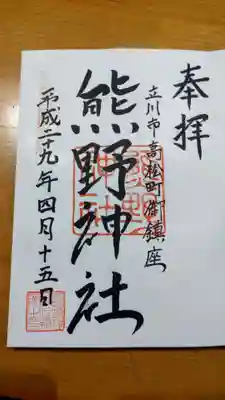 奉拝
立川市高松町御鎮座
熊野神社
平成二十九年四月十五日